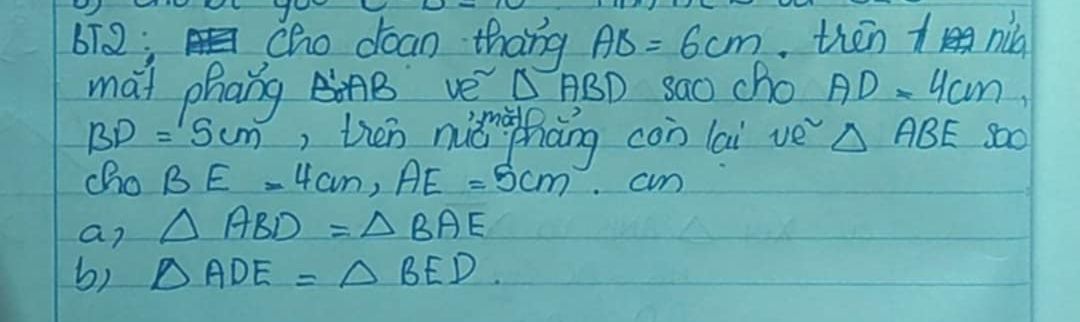 BT2: Cho đoạn thẳng AB = 6cm. trên 1 nửa
mặt phẳng AB vẽ Δ ABD sao cho AD = 4cm,
BD = 5cm, trên nửa mặt phẳng còn lại vẽ Δ ABE sao
cho BE = 4cm, AE = 5cm. cm
a, Δ ABD = Δ BAE
b) Δ ADE = Δ BED.